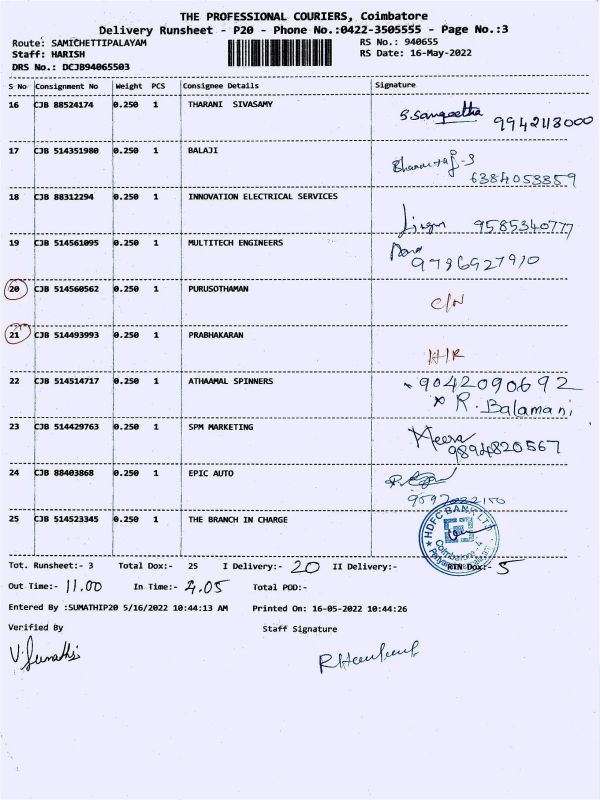 THE PROFESSIONAL COURIERS, Coimbatore
Delivery Runsheet - P20 - Phone No.:0422-3505555 - Page No.:3
Route: SAMICHETTIPALAYAM RS No.: 940655
Staff: HARISH RS Date: 16-May-2022
DRS No.: DCJB94065503
S No Consignment No Weight PCS Consignee Details Signature
16 CJB 88524174 0.250 1 THARANI SIVASAMY S.Sangeetha
17 CJB 514351980 0.250 1 BALAJI 6384053859
18 CJB 88312294 0.250 1 INNOVATION ELECTRICAL SERVICES 9585340777
19 CJB 514561095 0.250 1 MULTITECH ENGINEERS 9786927910
20 CJB 514560562 0.250 1 PURUSOTHAMAN C/N
21 CJB 514493993 0.250 1 PRABHAKARAN
22 CJB 514514717 0.250 1 ATHAAMAL SPINNERS 9042090692
R. Balamani
23 CJB 514429763 0.250 1 SPM MARKETING Meera
9894820567
24 CJB 88403868 0.250 1 EPIC AUTO
25 CJB 514523345 0.250 1 THE BRANCH IN CHARGE HDFC BANK LTD
Tot. Runsheet:- 3 Total Dox:- 25 I Delivery:- 20 II Delivery:- RTN Dox:- 5
Out Time:- 11.00 In Time:- 4.05 Total POD:-
Entered By :SUMATHIP20 5/16/2022 10:44:13 AM Printed On: 16-05-2022 10:44:26
Verified By Staff Signature
V.Sumathi